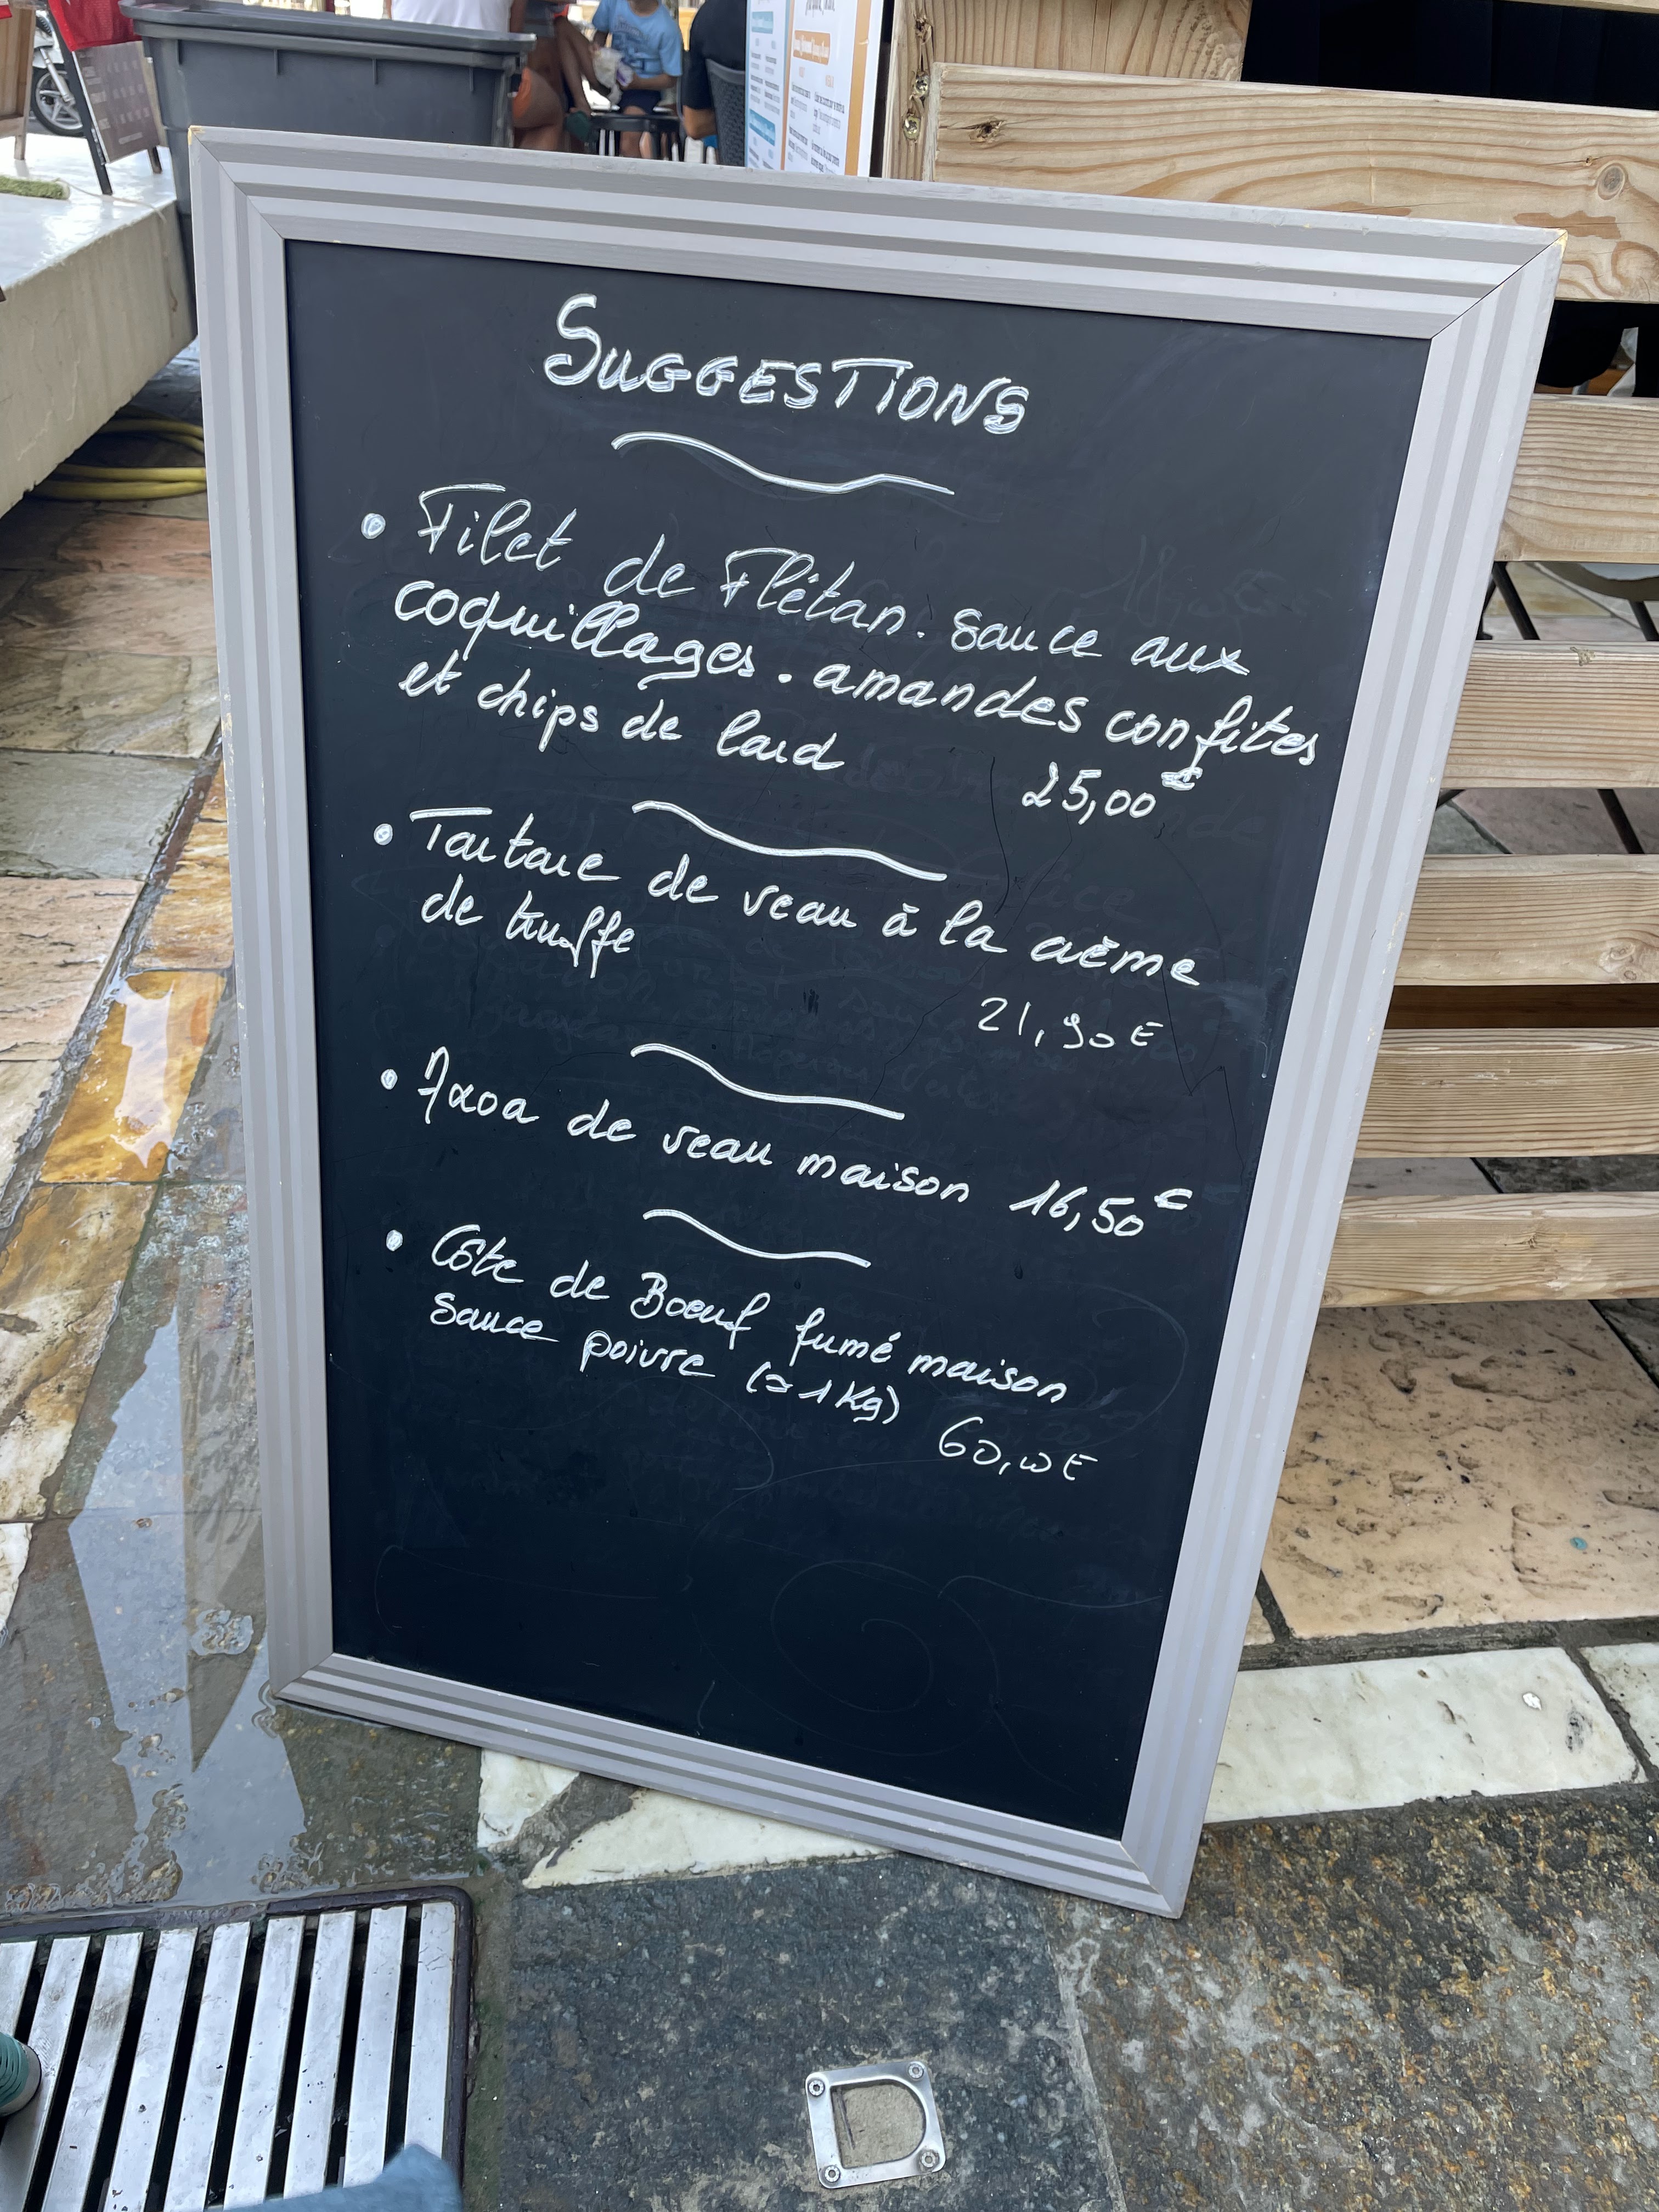 SUGGESTIONS
• Filet de Flétan. sauce aux
coquillages. amandes confites
et chips de lard
25,00€
• Tartare de veau à la crème
de truffe
21,90€
• Axoa de veau maison 16,50€
• Côte de Boeuf fumé maison
sauce poivre (≈1Kg)
60,00€